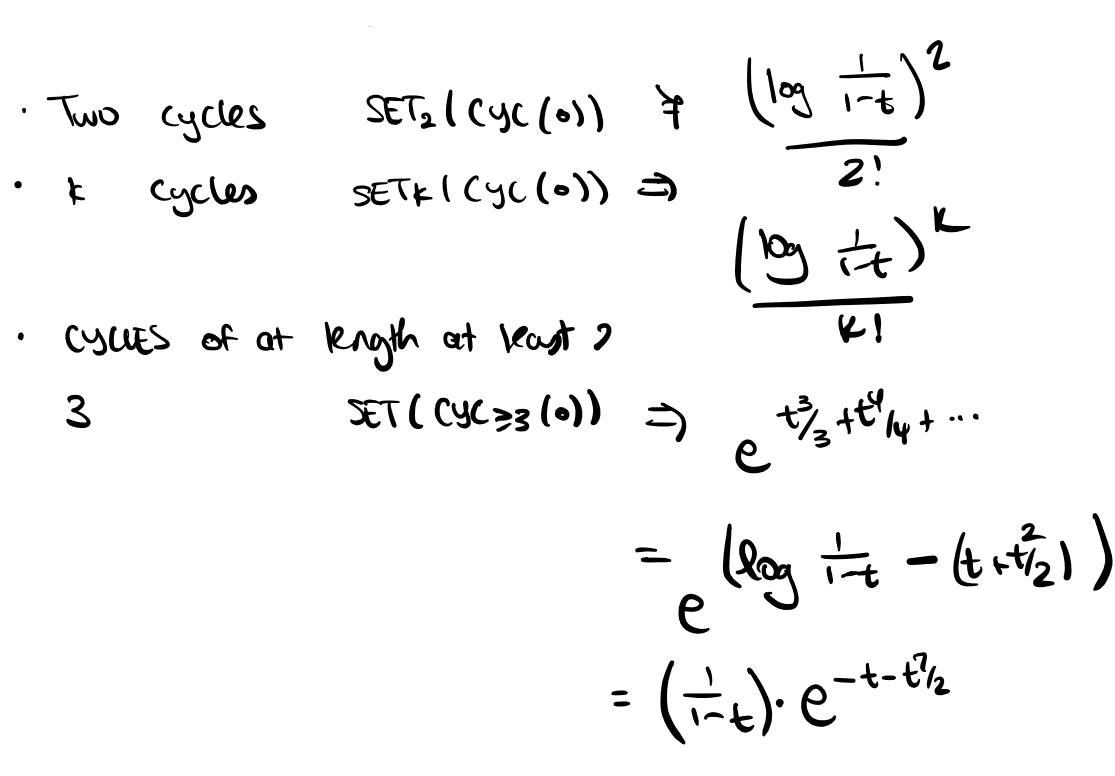 · Two cycles SET₂(CYC(o)) ⇒ (log 1/(1-t))² / 2!
· k cycles SETₖ(CYC(o)) ⇒ (log 1/(1-t))ᵏ / k!
· CYCLES of at length at least
3 SET(CYC≥3(o)) ⇒ e^(t³/3 + t⁴/4 + ...)
= e^(log 1/(1-t) - (t + t²/2))
= (1/(1-t)) · e^(-t - t²/2)